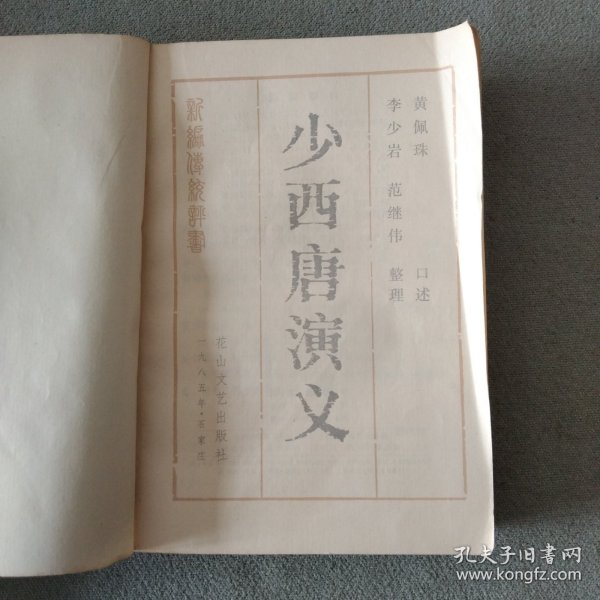 黄佩珠 口述
李少岩 范继伟 整理
少西唐演义
花山文艺出版社
一九八五年·石家庄
新編傳統評書
孔夫子旧书网
www.kongfz.com